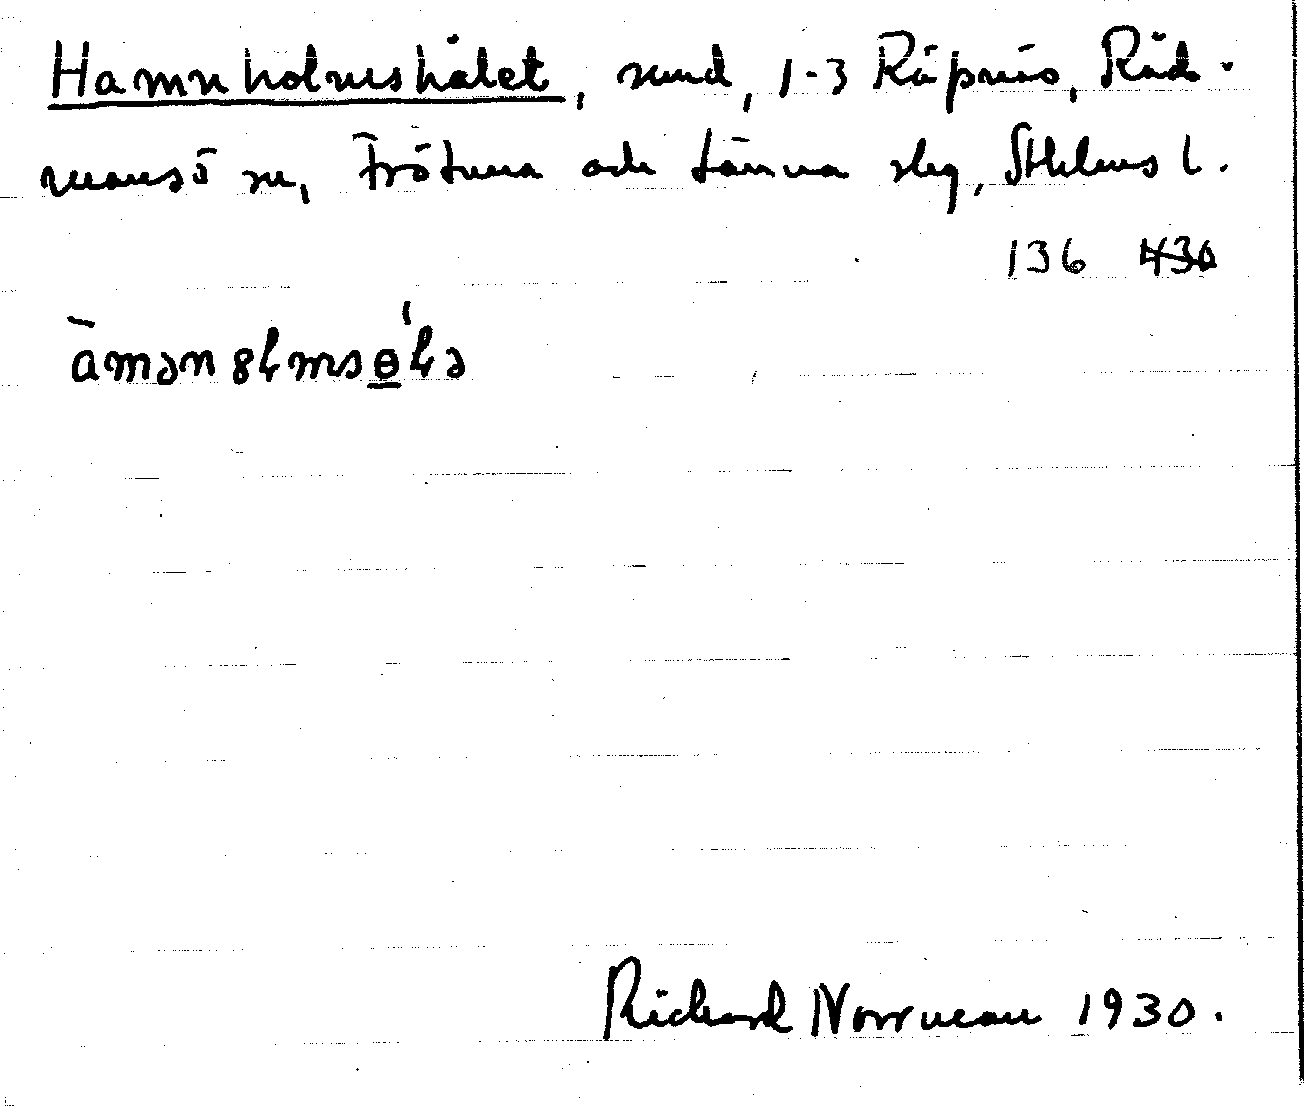 Hamnholmshålet, sund, 1-3 Räpnäs, Råd-
mansö sn, Frötuna och Länna slg, Sthlms l.
136 430
Richard Norrman 1930.